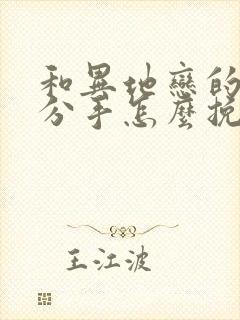 和異地戀的
分手怎麼挽
王江波